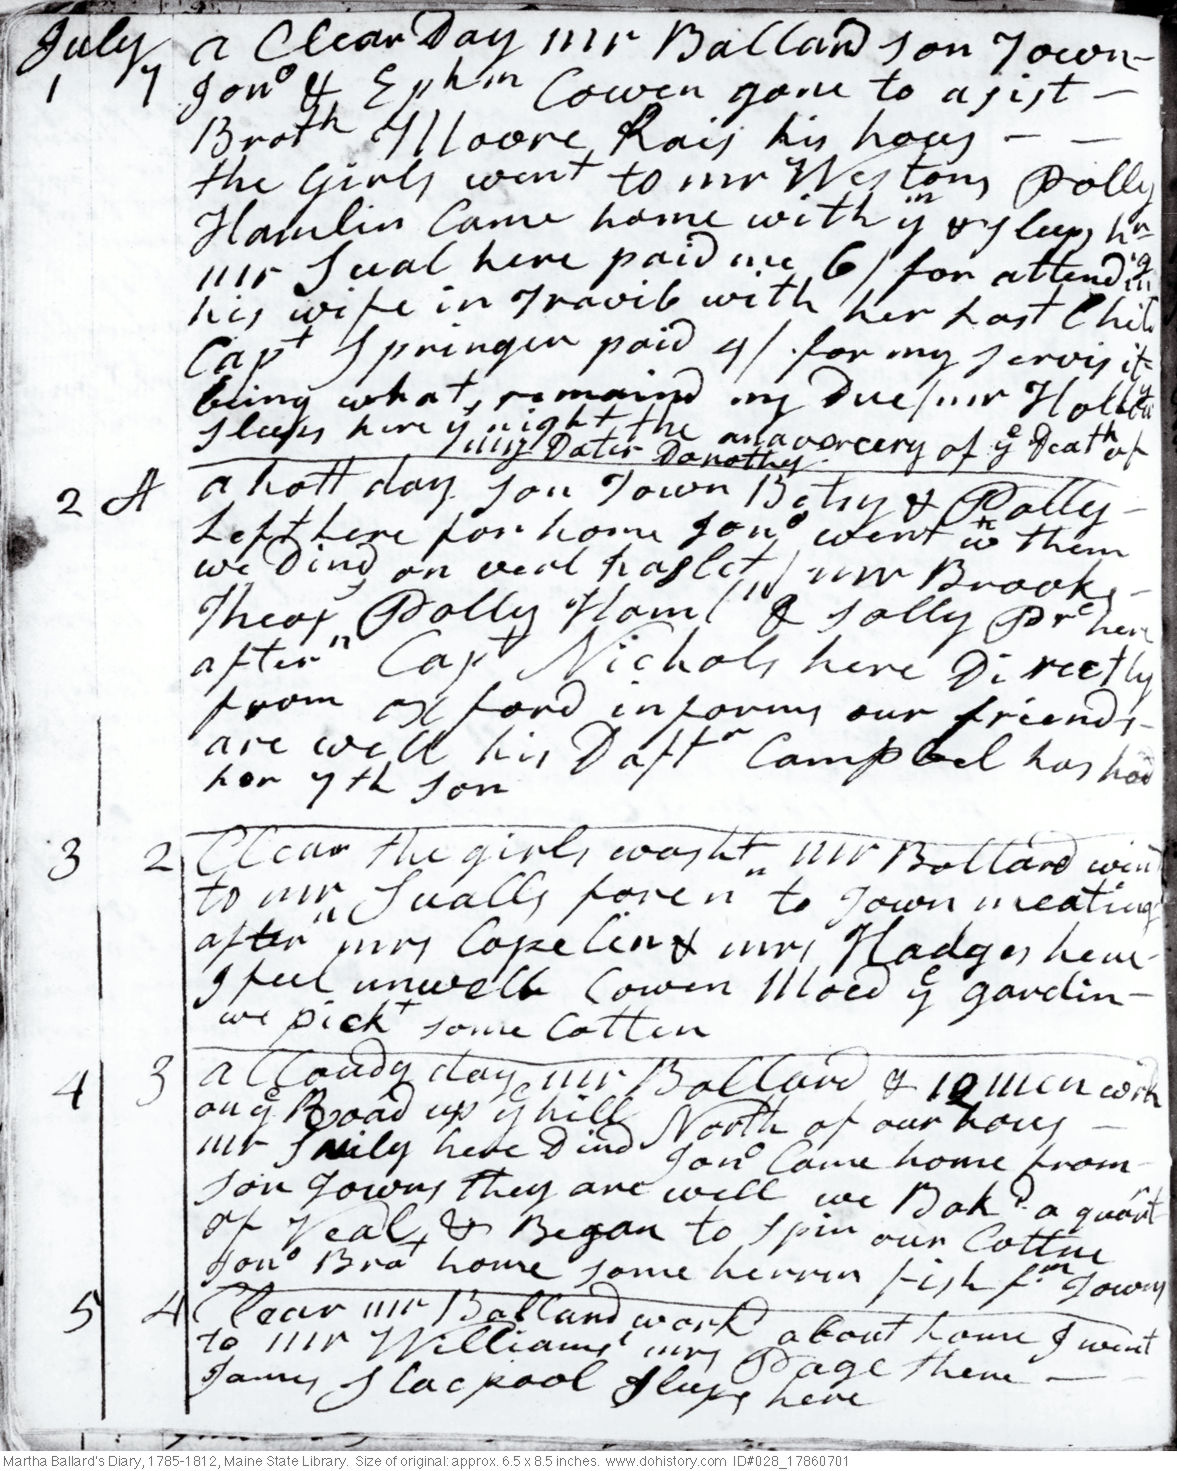 July
1 7 a Clear Day mr Ballard son Town
Jono & Ephm Cowen gone to asist
Broth Moore Rais his hous
the Girls went to mr Westons Polly
Hamlin Came home with ym & sleeps hr
mr Sual here paid me 6/ for attending
his wife in Travib with her Last Child
Capt Springer paid 4/ for my servis it
being what remaind my Due mr
sleeps here ys night the anavorcery of ye Death of
my Dater Dorothy
2 A a hott day son Town Betsy & Polly
Left here for home Jono went wn them
we Dind on veal haslet mr Brooks
Theos Polly Haml & Sally Prc here
aftern Capt Nichols here Directly
from oxford informs our friends
are well his Daftr Campbel has had
her 7th son
3 2 Clear the girls washt mr Ballard wint
to mr Sualls foren to Town meating
aftern mrs Copelin & mrs Hodges here
I feel unwell Cowen Moed ye gardin
we pickt some Cotten
4 3 a Cloudy day mr Ballard & 10 men work
on ye Road up ye hill North of our hous
mr Smily here Dind Jono Came home from
son Towns they are well we Bakd a quartr
of Veal & Began to spin our Cottne
Jono Brot home some herrin fish fm Towns
5 4 Clear mr Ballard work about home I went
to mr Williams mrs Page there
James Slacpool sleeps here
Martha Ballard's Diary, 1785-1812, Maine State Library. Size of original: approx. 6.5 x 8.5 inches. www.dohistory.com ID#028_17860701